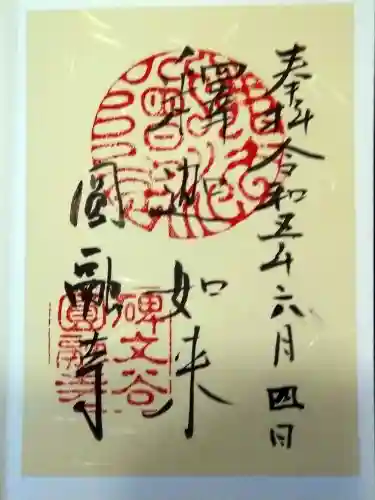 奉拝 令和五年六月四日
釋迦如来
圓融寺
碑文谷
圓融寺